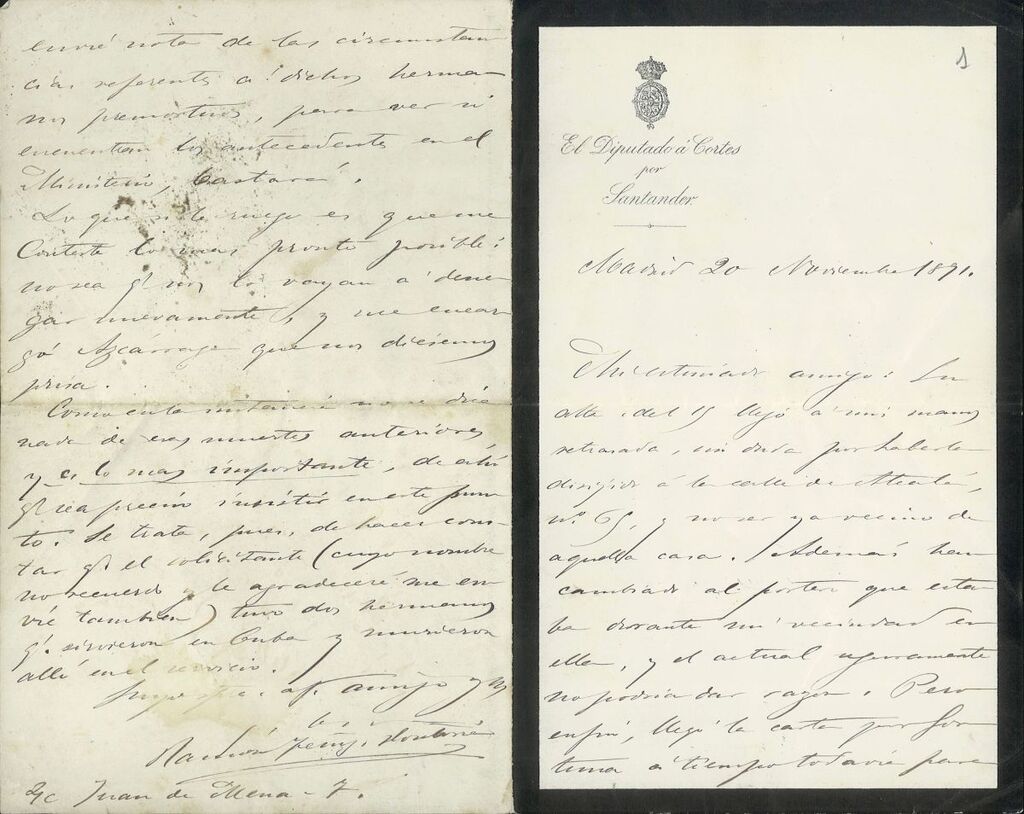 1
El Diputado á Cortes
por
Santander
Madrid 20 Noviembre 1891.
Mi estimado amigo: Su
atta. del 15 llegó á mis manos
retrasada, sin duda por haberla
dirigido á la calle de Alcalá,
nº 65, y no ser ya vecino de
aquella casa. Además han
cambiado al portero que esta
ba durante mi vecindad en
ella, y el actual seguramente
no podria dar razon. Pero
enfin, llegó la carta por for
tuna á tiempo todavia para
envié nota de las circunstan
cias referentes á dichos herma
nos premortuos, para ver si
encuentran los antecedentes en el
Ministerio, bastará.
Lo que si le ruego es que me
Conteste lo mas pronto posible:
no sea qe nos lo vayan á dene
gar nuevamente, y me encar
gó Azcárraga que nos diésemos
prisa.
Como en la instancia no se dice
nada de esas muertes anteriores
y es lo mas importante, de ahi
qe sea preciso insistir en este pun
to. Se trata, pues, de hacer cons
tar qe el solicitante (cuyo nombre
no recuerdo y le agradeceré me en
vie tambien) tuvo dos hermanos
qe sirvieron en Cuba y murieron
allí en el servicio.
siempre. af. amigo y
Ramón
Juan de Mena - 7.